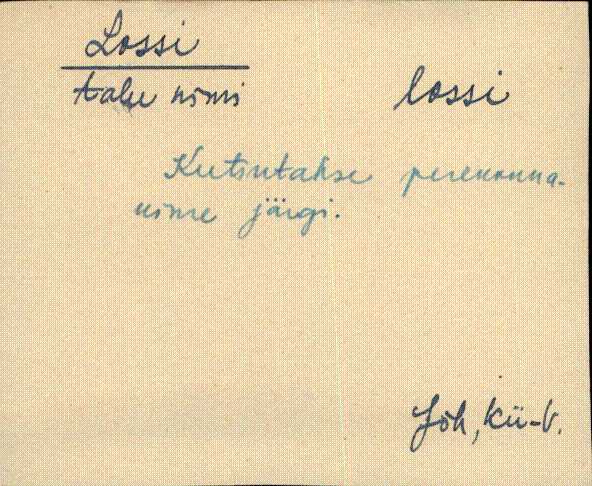 Lossi
talu nimi lossi
Kutsutakse perekonna-
nime järgi.
Jõh, Kü-V.